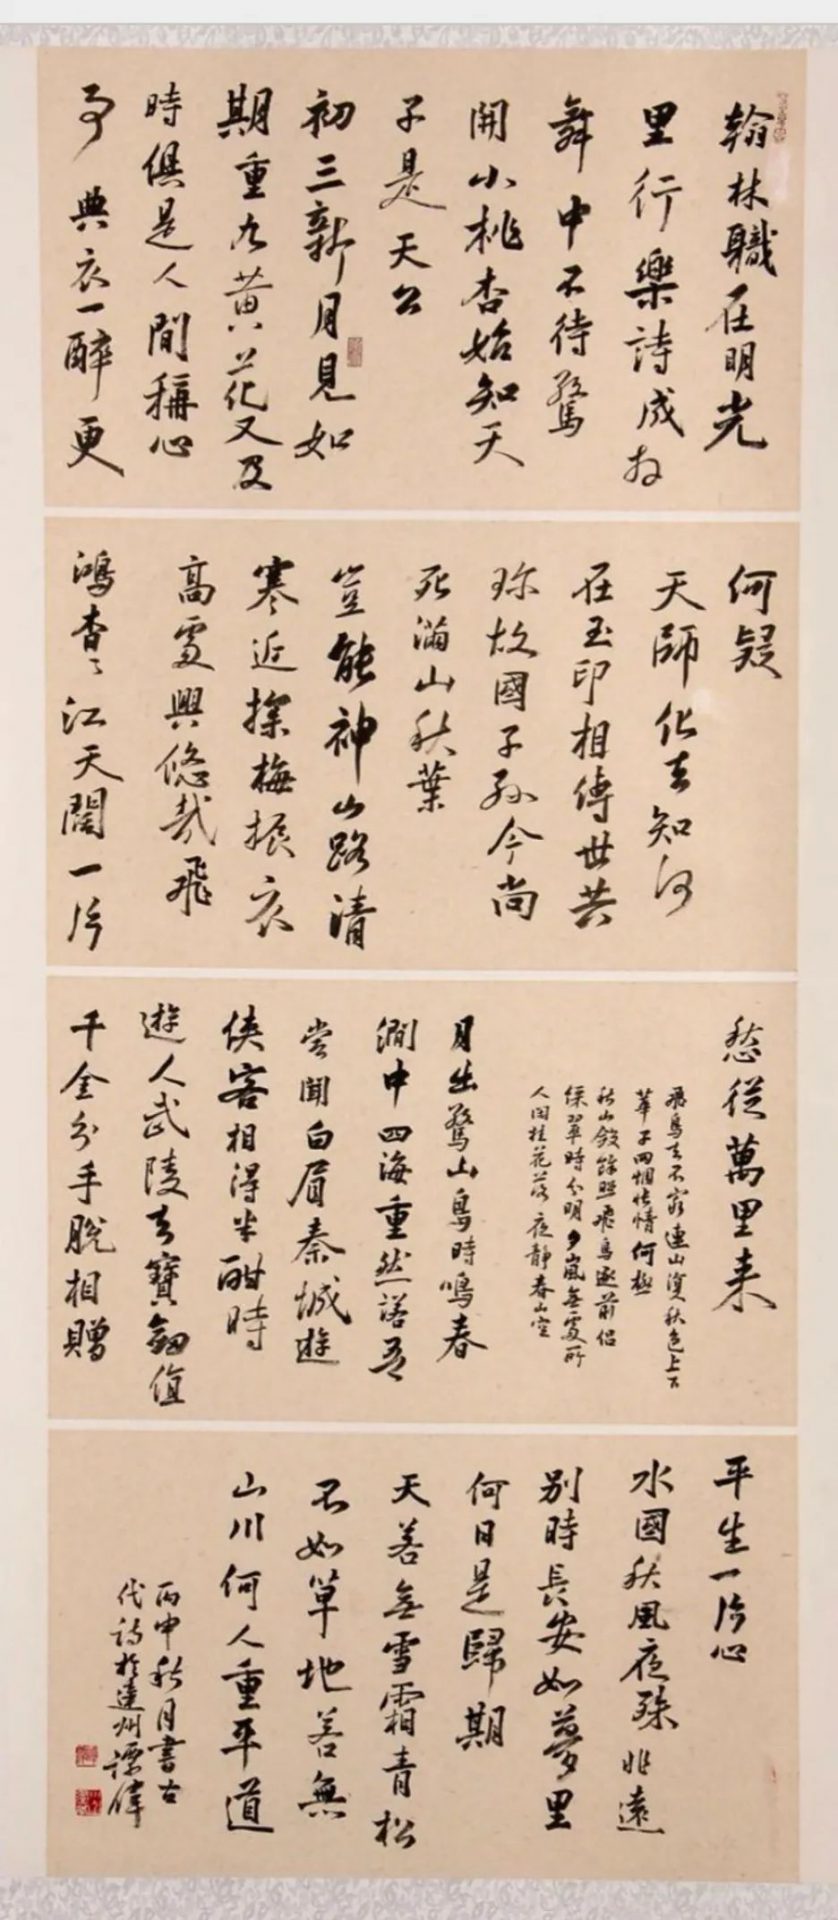 翰林職在明光
里行樂詩成拜
舞中不待驚
開小桃杏始知天
子是天公
初三新月見如
期重九黃花又及
時俱是人間稱心
事典衣一醉更
何疑
天師化去知何
在玉印相傳世共
珍故國子孫今尚
死滿山秋葉
豈能神山路清
寒近探梅振衣
高處興悠哉飛
鴻杳々江天闊一片
愁從萬里來
飛鳥去不窮連山復秋色上下
華子岡惆悵情何極
秋山斂餘照飛鳥逐前侶
綵翠時分明夕嵐無處所
人閒桂花落夜靜春山空
月出驚山鳥時鳴春
澗中四海重然諾吾
嘗聞白眉秦城遊
俠客相得半酣時
遊人武陵去寶劍值
千金分手脫相贈
平生一片心
水國秋風夜殊非遠
別時長安如夢里
何日是歸期
天若無雪霜青松
不如草地若無
山川何人重平道
丙申秋月書古
代詩於達州譚偉